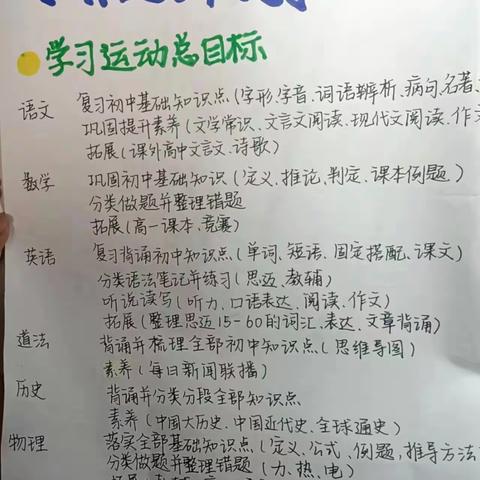 学习运动总目标
语文 复习初中基础知识点(字形、字音、词语辨析、病句、名著、
巩固提升素养(文学常识、文言文阅读、现代文阅读、作文
拓展(课外高中文言文、诗歌)
数学 巩固初中基础知识(定义、推论、判定、课本例题)
分类做题并整理错题
拓展(高一课本、竞赛)
英语 复习背诵初中知识点(单词、短语、固定搭配、课文)
分类语法笔记并练习(思迈、教辅)
听说读写(听力、口语表达、阅读、作文)
拓展(整理思迈15-60的词汇、表达、文章背诵)
道法 背诵并梳理全部初中知识点(思维导图)
素养(每日新闻联播)
历史 背诵并分类分段全部知识点
素养(中国大历史、中国近代史、全球通史)
物理 落实全部基础知识点(定义、公式、例题,推导方法
分类做题并整理错题(力、热、电)